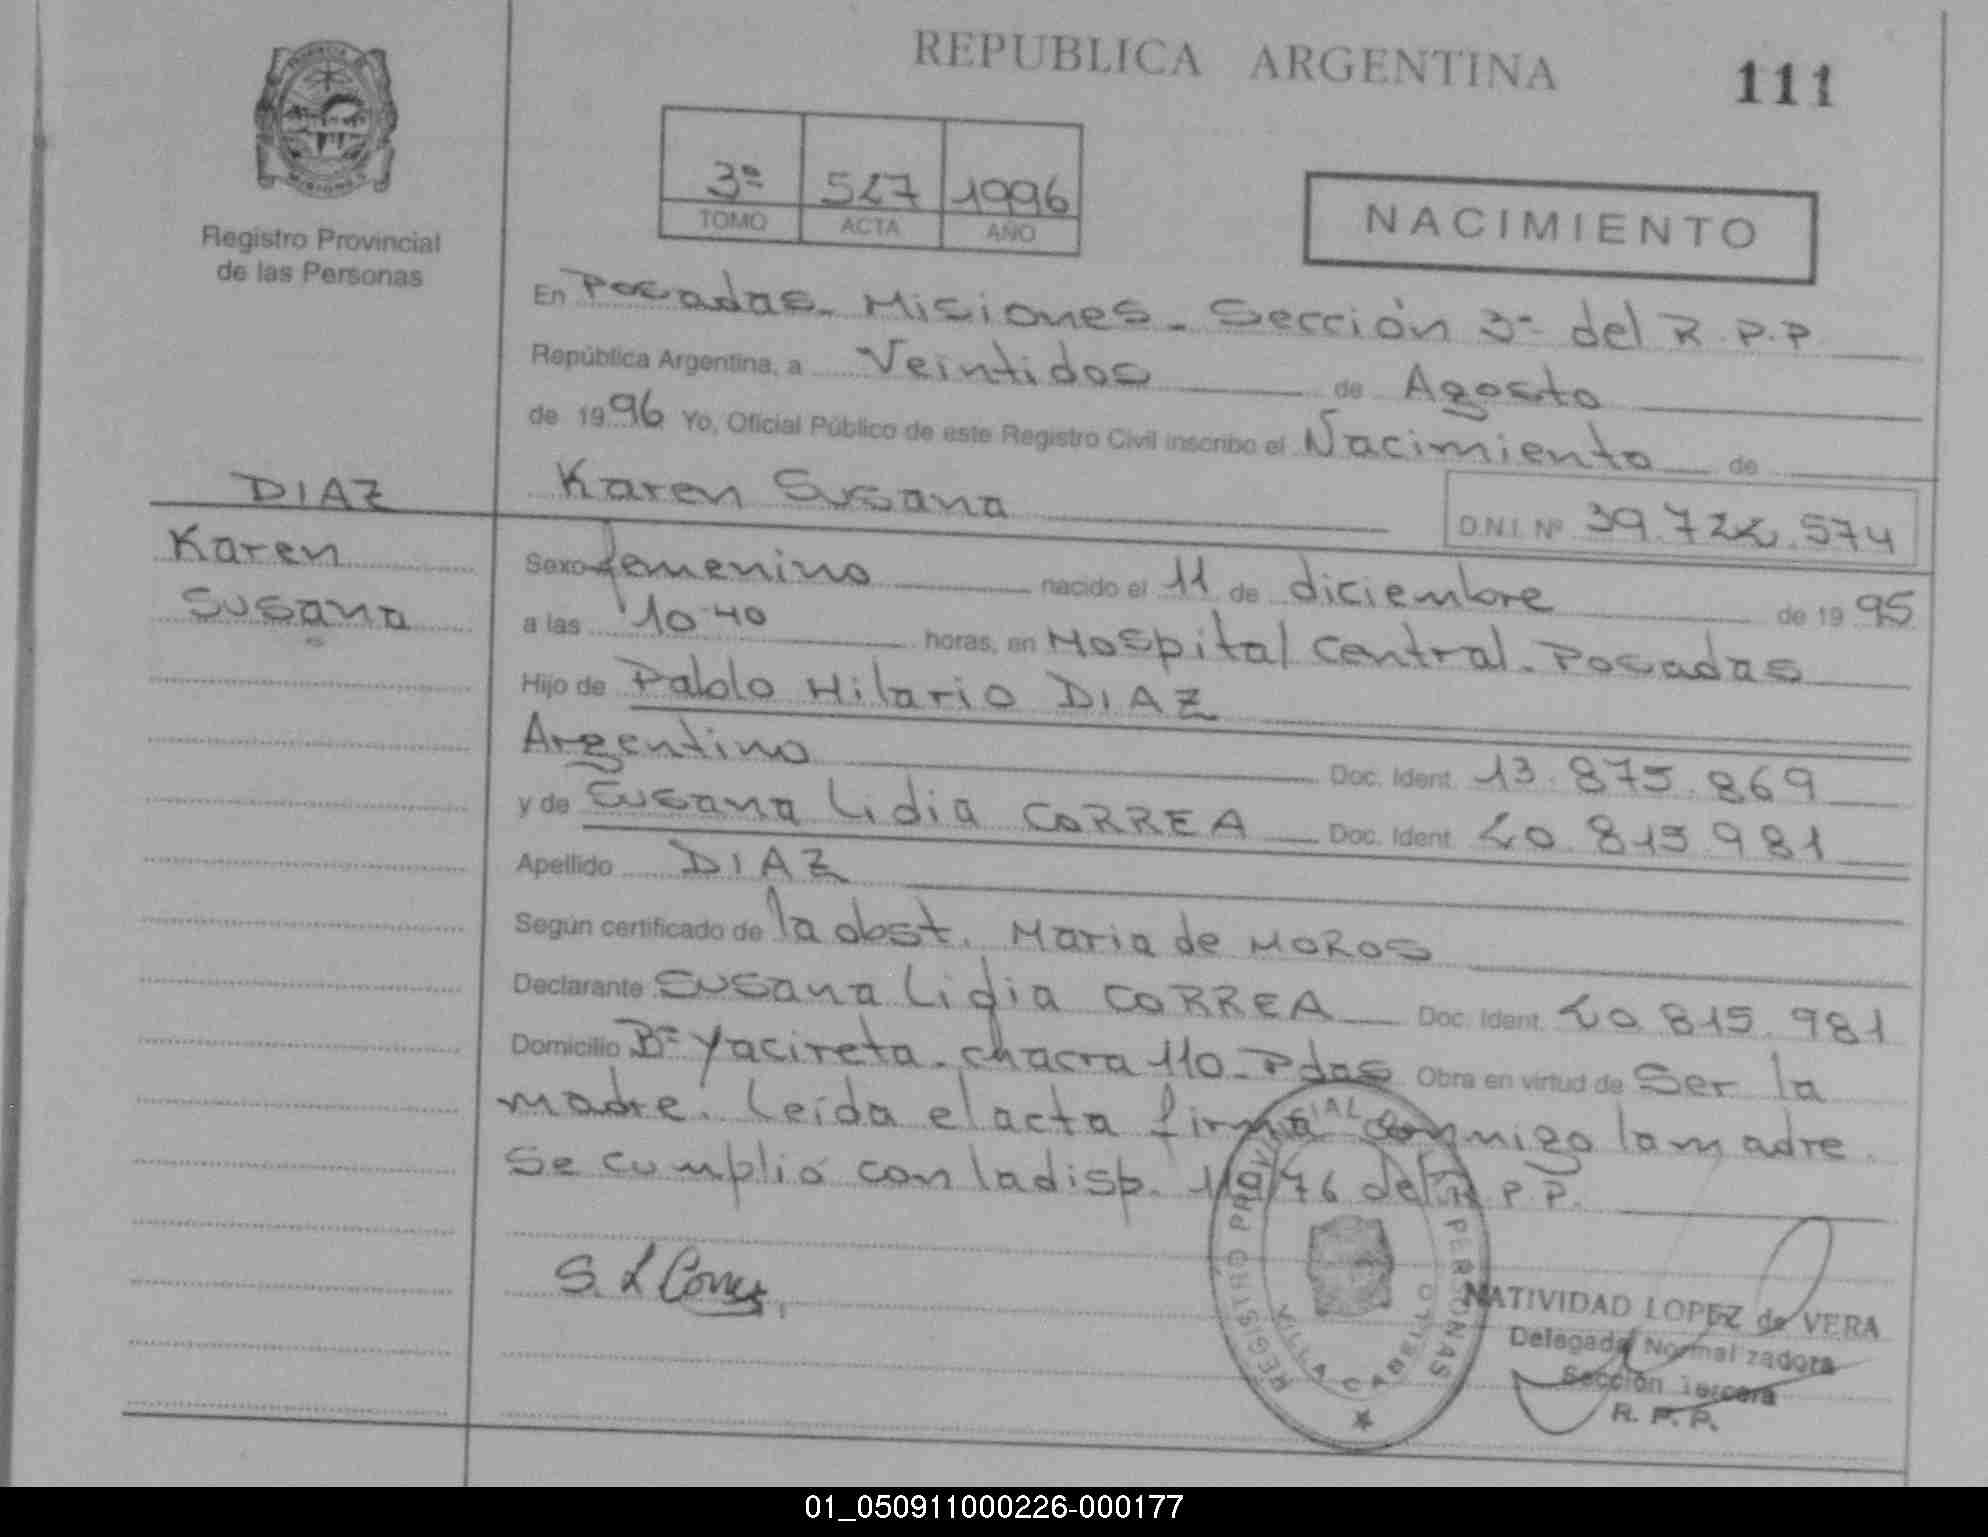 REPUBLICA ARGENTINA
111
PROVINCIA DE
MISIONES
Registro Provincial
de las Personas
3º 527 1996
TOMO ACTA AÑO
NACIMIENTO
En Posadas. Misiones. Sección 3ª del R.P.P
República Argentina, a Veintidos de Agosto
de 1996 Yo, Oficial Público de este Registro Civil inscribo el Nacimiento de
DIAZ
Karen Susana
D.N.I. Nº 39.722.574
Karen
Susana
Sexo femenino nacido el 11 de diciembre de 1995
a las 10.40 horas, en Hospital Central. Posadas
Hijo de Pablo Hilario DIAZ
Argentino Doc. Ident. 13.875.869
y de Susana Lidia CORREA Doc. Ident. 20.815.981
Apellido DIAZ
Según certificado de la obst. Maria de MOROS
Declarante Susana Lidia CORREA Doc. Ident. 20.815.981
Domicilio Bº Yacireta. chacra 110. Pdas Obra en virtud de Ser la
madre. Leída el acta firma conmigo la madre.
Se cumplió con la disp. 19/76 del R.P.P.
S. L Correa
REGISTRO PROVINCIAL PERSONAS
VILLA CABELLO
NATIVIDAD LOPEZ de VERA
Delegada Normalizadora
Sección Tercera
R. P. P.
01_050911000226-000177